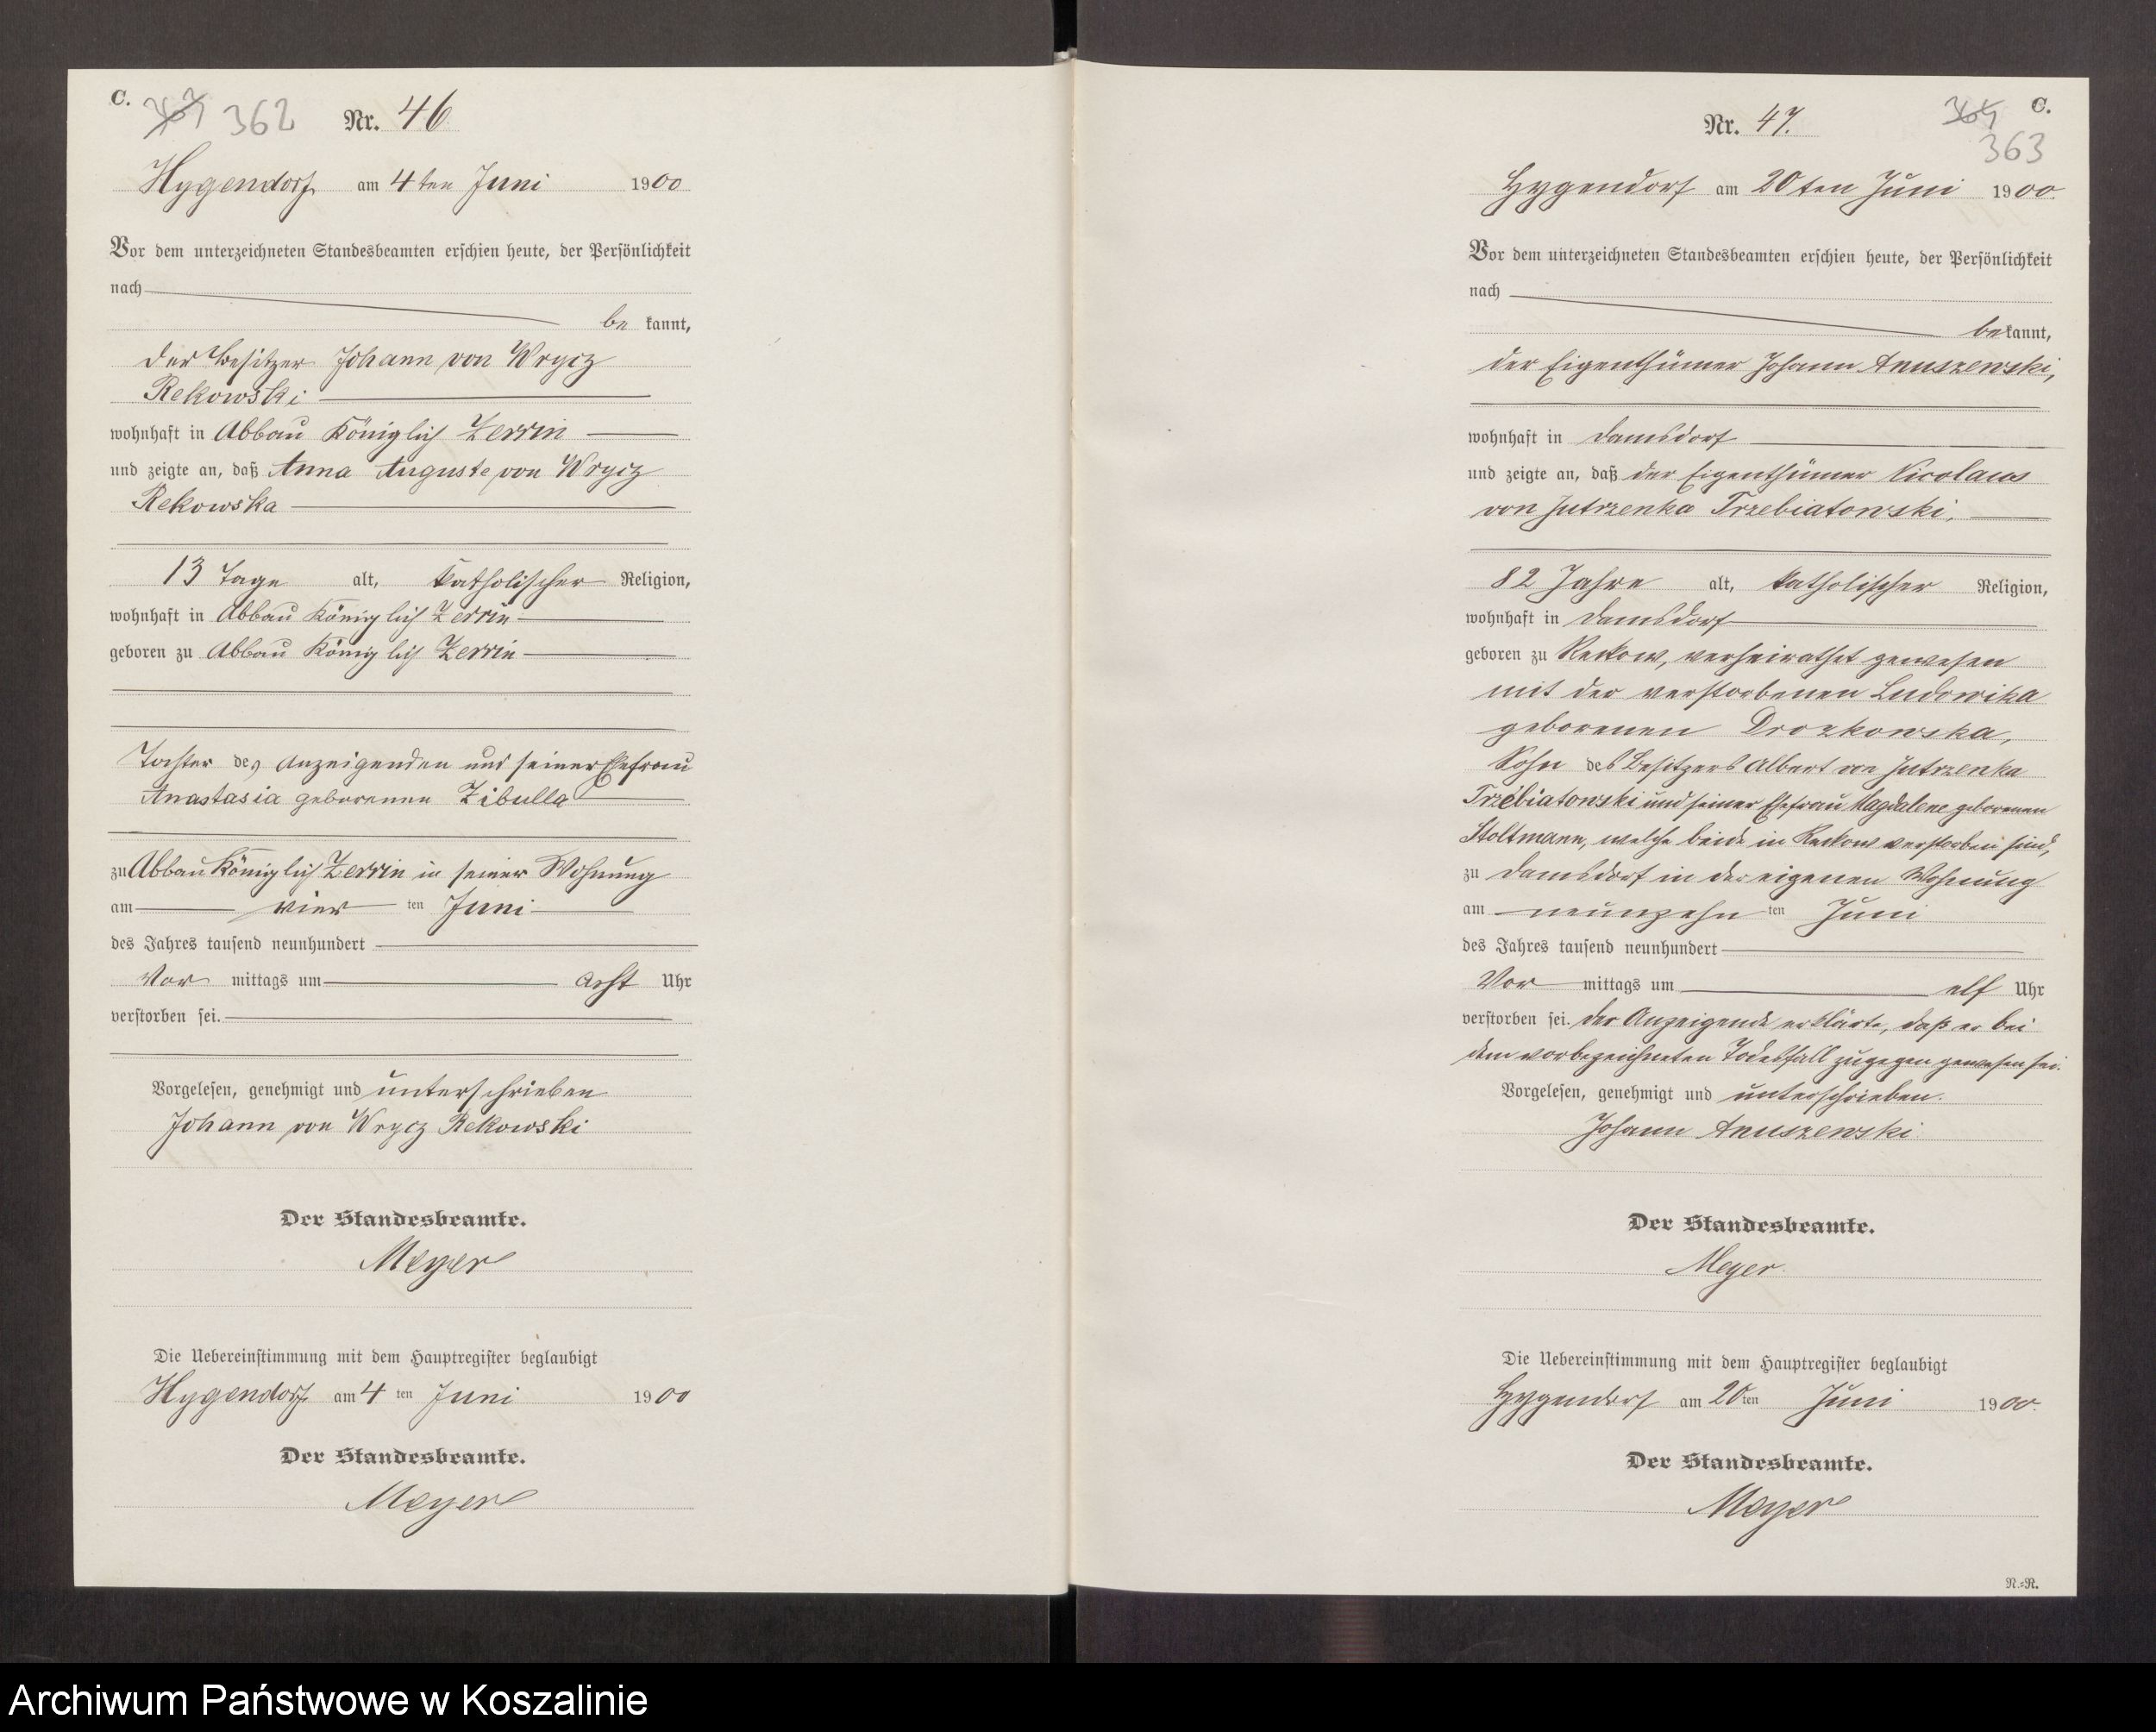 C. 362 Nr. 46
Hygendorf am 4ten Juni 1900
Vor dem unterzeichneten Standesbeamten erschien heute, der Persönlichkeit
nach
be kannt,
der Besitzer Johann von Wrycz
Rekowski
wohnhaft in Abbau Königlich Zerrin
und zeigte an, daß Anna Auguste von Wrycz
Rekowska
13 Tage alt, katholischer Religion,
wohnhaft in Abbau Königlich Zerrin
geboren zu Abbau Königlich Zerrin
Tochter des Anzeigenden und seiner Ehefrau
Anastasia geborenen Zibulla
zu Abbau Königlich Zerrin in seiner Wohnung
am vier ten Juni
des Jahres tausend neunhundert
Vor mittags um acht Uhr
verstorben sei.
Vorgelesen, genehmigt und unterschrieben
Johann von Wrycz Rekowski
Der Standesbeamte.
Meyer
Die Uebereinstimmung mit dem Hauptregister beglaubigt
Hygendorf am 4 ten Juni 1900
Der Standesbeamte.
Meyer
Nr. 47. 364 C.
363
Hygendorf am 20ten Juni 1900.
Vor dem unterzeichneten Standesbeamten erschien heute, der Persönlichkeit
nach
bekannt,
der Eigenthümer Johann Anuszewski,
wohnhaft in Damsdorf
und zeigte an, daß der Eigenthümer Nicolaus
von Jutrzenka Trzebiatowski,
82 Jahre alt, katholischer Religion,
wohnhaft in Damsdorf
geboren zu Reckow, verheirathet gewesen
mit der verstorbenen Ludowika
geborenen Drozkowska,
Sohn des Besitzers Albert von Jutrzenka
Trzebiatowski und seiner Ehefrau Magdalene geborenen
Stoltmann, welche beide in Reckow verstorben sind,
zu Damsdorf in der eigenen Wohnung
am neunzehn ten Juni
des Jahres tausend neunhundert
Vor mittags um elf Uhr
verstorben sei. Der Anzeigende erklärte, daß er bei
dem vorbezeichneten Todesfall zugegen gewesen sei.
Vorgelesen, genehmigt und unterschrieben.
Johann Anuszewski
Der Standesbeamte.
Meyer.
Die Uebereinstimmung mit dem Hauptregister beglaubigt
Hygendorf am 20ten Juni 1900.
Der Standesbeamte.
Meyer
N.=N.
Archiwum Państwowe w Koszalinie